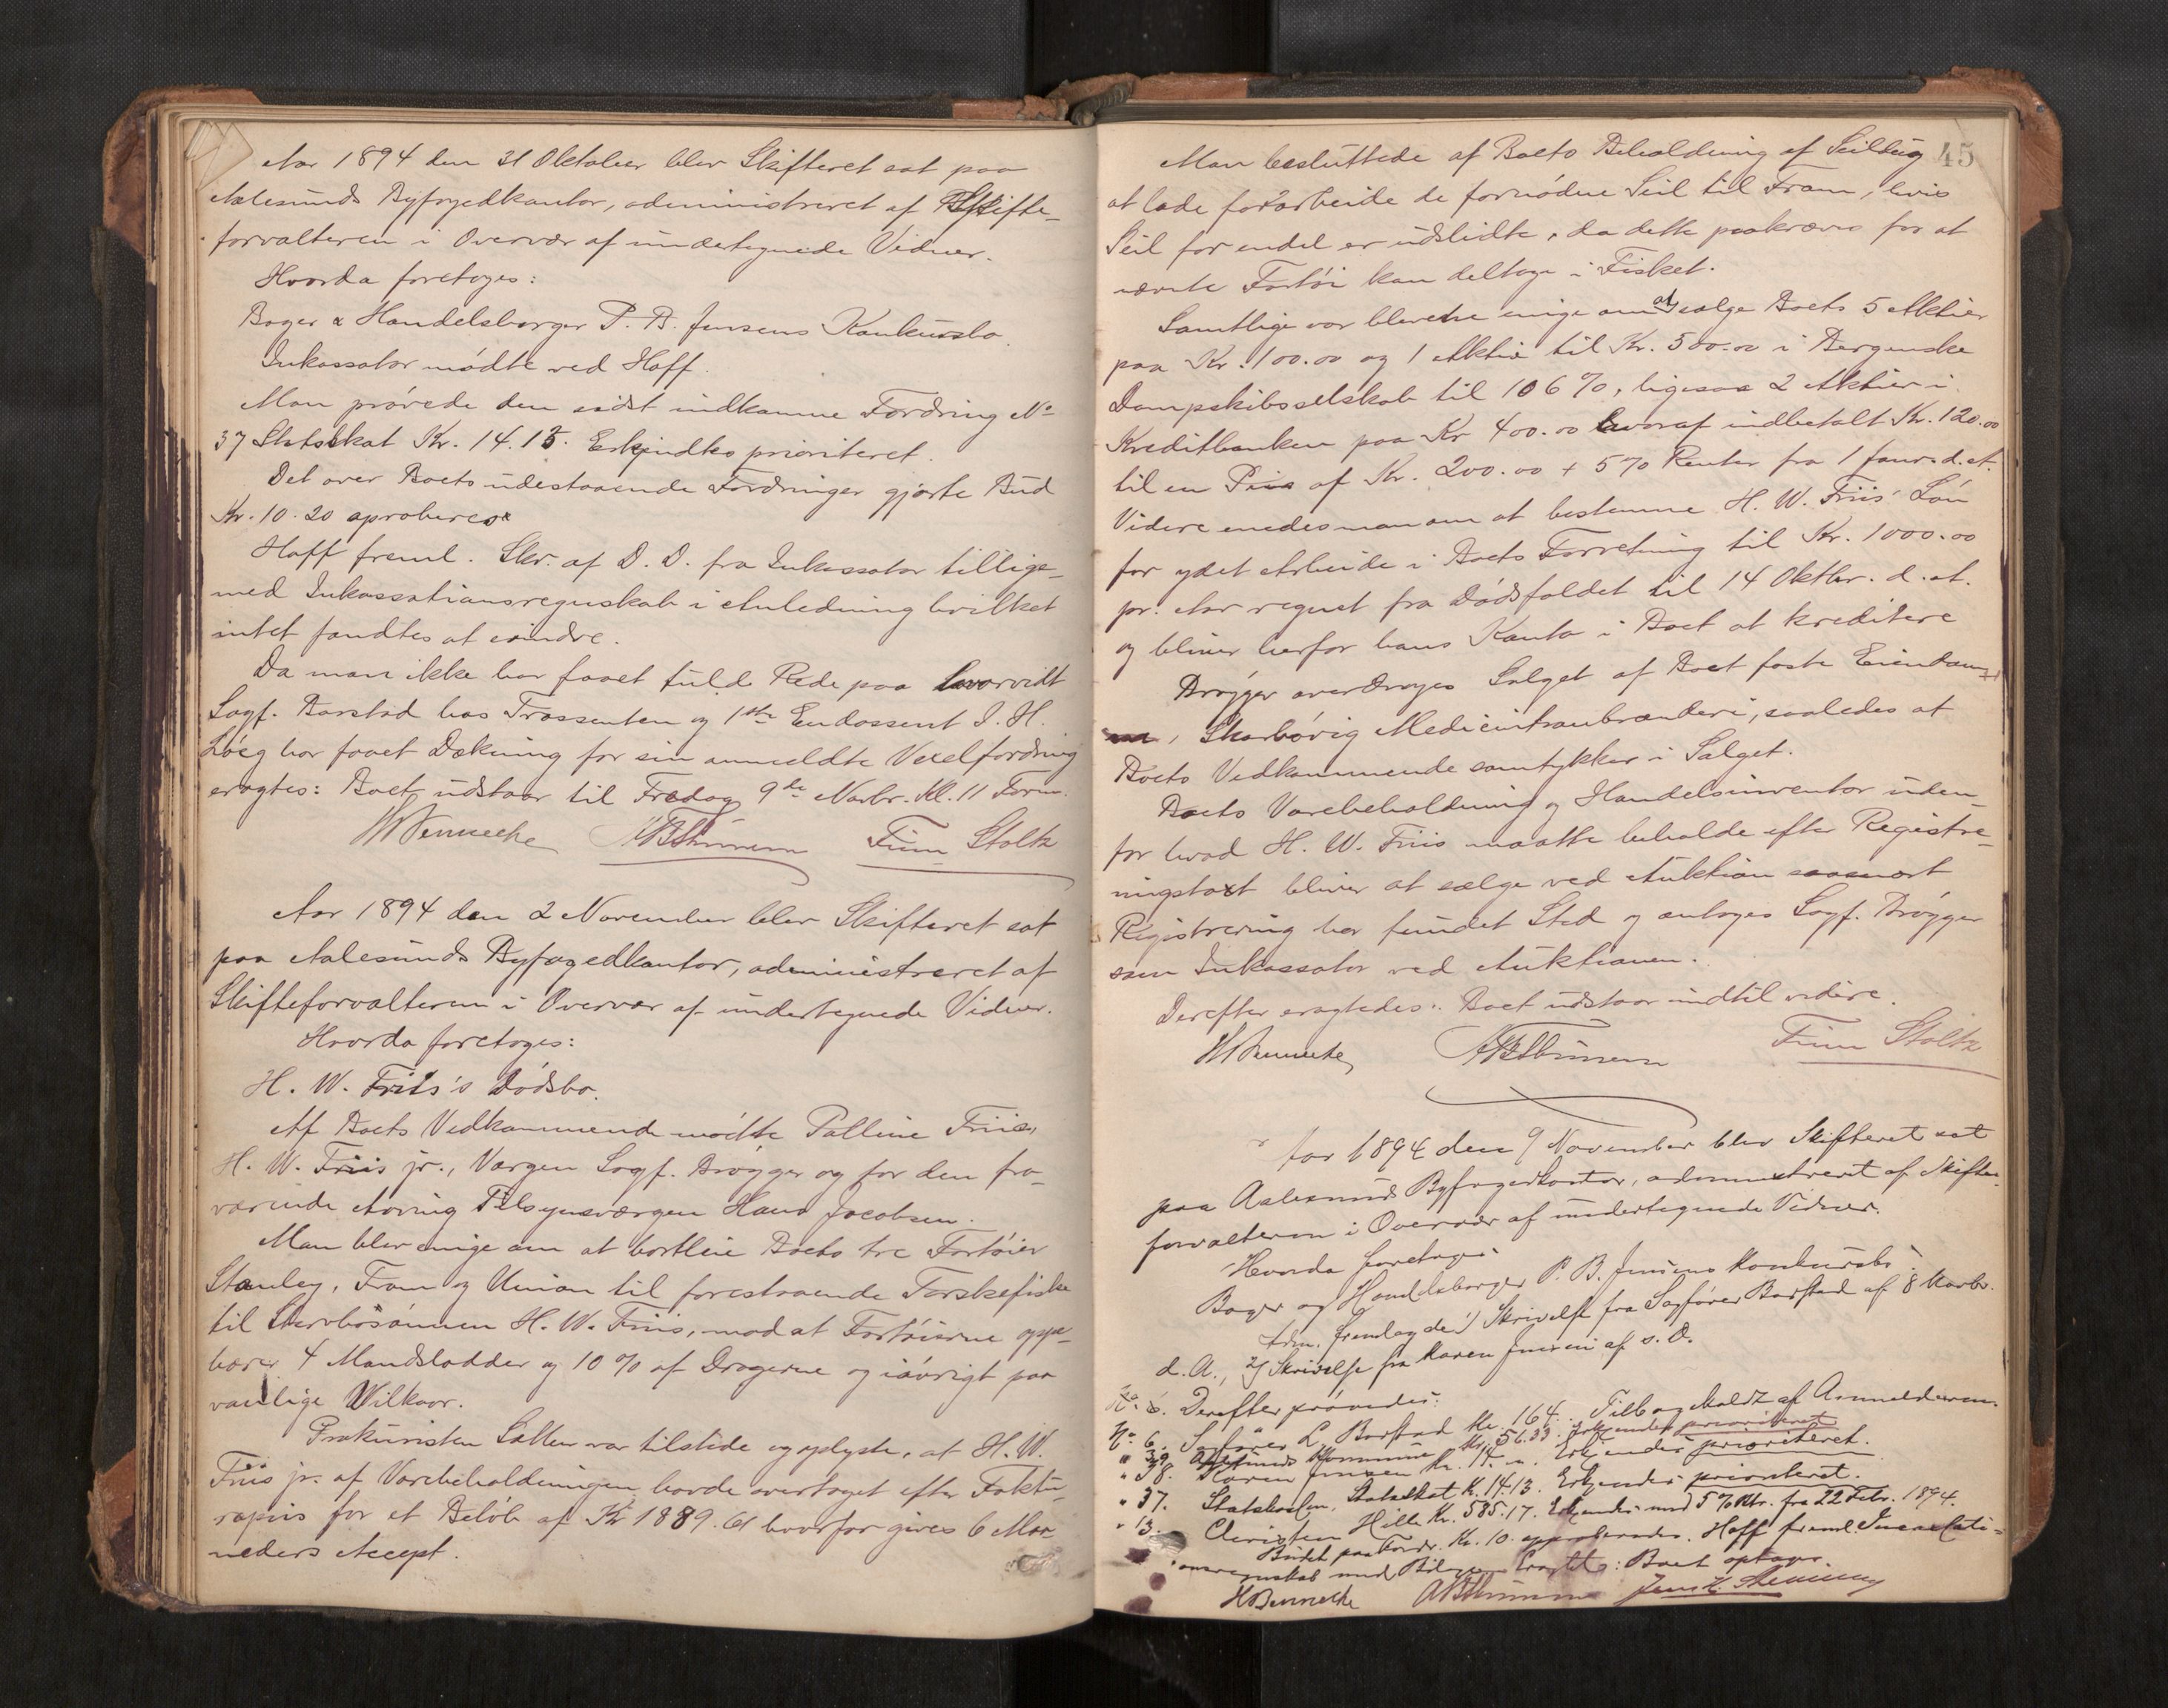 Aar 1894 den 31 Oktober blev Skifteret sat paa
Aalesunds Byfogedkontor, administreret af Skifte-
forvalteren i Overvær af undertegnede Vidner.
Hvorda foretoges:
Bager & Handelsborger P. B. Jensens Konkursbo.
Inkassator mødte ved Hoff.
Man prøvede den sidst indkomne Fordring No
37 Statsskat Kr. 14.13. Erkjendtes prioriteret.
Det over Boets udestaaende Fordringer gjorte Bud
Kr. 10.20 aproberes
Hoff freml. Skr. af D. D. fra Inkassator tillige-
med Inkassationsregnskab i Anledning hvilket
intet fandtes at erindre.
Da man ikke har faaet fuld Rede paa hvorvidt
Sagf. Barstad hos Trassenten og 1ste Endossent I. H.
Løvg har faaet Dækning for sin anmeldte Vexelfordring
eragtes: Boet udstaar til Fredag 9de Novbr. Kl. 11 Form.
HBennecke ABThunem Finn Stoltz
Aar 1894 den 2 November blev Skifteret sat
paa Aalesunds Byfogedkontor, administreret af
Skifteforvalteren i Overvær af undertegnede Vidner.
Hvorda foretoges:
H. W. Friis's Dødsbo.
Af Boets Vedkommende mødte Palline Friis,
H. W. Friis jr., Værgen Sagf. Brøgger og for den fra-
værende Arving Tilsynsværgen Hans Jacobsen.
Man blev enige om at bortleie Boets tre Fartøier
Stanley, Fram og Union til forestaaende Torskefiske
til Stervbosønnen H. W. Friis, mod at Fartøierne opp-
bærer 4 Mandslodder og 10 % af Dragerne og iøvrigt paa
vanlige Vilkaar.
Prokuristen Sætter var tilstede og oplyste, at H. W.
Friis jr. af Varebeholdningen havde overtaget efter Faktu-
rapris for et Beløb af Kr 1889.61 hvorfor gives 6 Maa-
neders Accept.
45
Man besluttede af Boets Beholdning af Seildug
at lade forarbeide de fornødne Seil til Fram, hvis
Seil for endel er udslidte, da dette paakræves for at
nævnte Fartøi kan deltage i Fisket.
Samtlige var blevne enige om at sælge Boets 5 Aktier
paa Kr. 100.00 og 1 Aktie til Kr. 500.00 i Bergenske
Dampskibsselskab til 106 %, ligesaa 2 Aktier i
Kreditbanken paa Kr 400.00 hvoraf indbetalt Kr. 120.00
til en Pris af Kr. 200.00 + 5 % Renter fra 1 Januar d. A.
Videre enedes man om at bestemme H. W. Friis' Løn
for ydet Arbeide i Boets Forretning til Kr. 1000.00
pr. Aar regnet fra Dødsfaldet til 14 Oktbr. d. A.
og bliver herfor hans Konto i Boet at kreditere
Brøgger overdrages Salget af Boet faste Eiendom
, Skarbøvig Medicintranbrænderi, saaledes at
Boets Vedkommende samtykker i Salget.
Boets Varebeholdning og Handelsinventar uden-
for hvad H. W. Friis maatte beholde efter Registre-
ringstaxt bliver at sælge ved Auktion saasnart
Registrering har fundet Sted og antages Sagf. Brøgger
som Inkassator ved Auktionen.
Derefter eragtedes: Boet udstaar indtil videre.
HBennecke ABThunem Finn Stoltz
Aar 1894 den 9 November blev Skifteret sat
paa Aalesunds Byfogedkontor, administreret af Skifte-
forvalteren i Overvær af undertegnede Vidner.
Hvorda foretoges:
Bager og Handelsborger P. B. Jensens Konkursbo.
Adm. fremlagde 1) Skrivelse fra Sagfører Barstad af 8 Novbr.
d. A., 2) Skrivelse fra Karen Jensen af s. D.
Derefter prøvedes:
No 6. Sagfører L. Barstad Kr. 164. Tilbagekaldt af Anmelderen.
" 39. Aalesunds Kommune Kr. 56.33. Erkjendes prioriteret.
" 38. Karen Jensen Kr. 14. Erkjendes prioriteret.
" 37. Statskassen, Statsskat K. 14.13. Erkjendes prioriteret.
" 13. Christen Holle Kr. 585.17. Erkjendes med 5 % Rtr. fra 22 Febr. 1894.
Budet paa Fordr. Kr. 10. approberedes. Hoff freml. Inkassati-
onsregnskab med Bilag. Eragtet: Boet optages.
HBennecke ABThunem